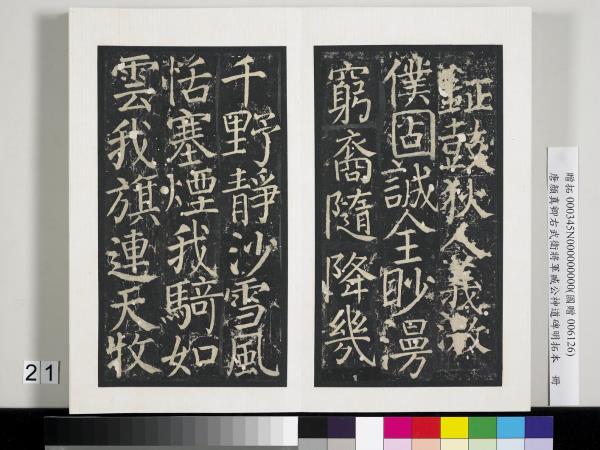 鉦鼓狄人義激
僕固誠全眇漫
窮裔隨降幾
千野靜沙雪風
恬塞煙我騎如
雲我旗連天牧
贈拓 000345N000000000(國贈 006126)
唐顏真卿右武衛將軍臧公神道碑明拓本 冊
21